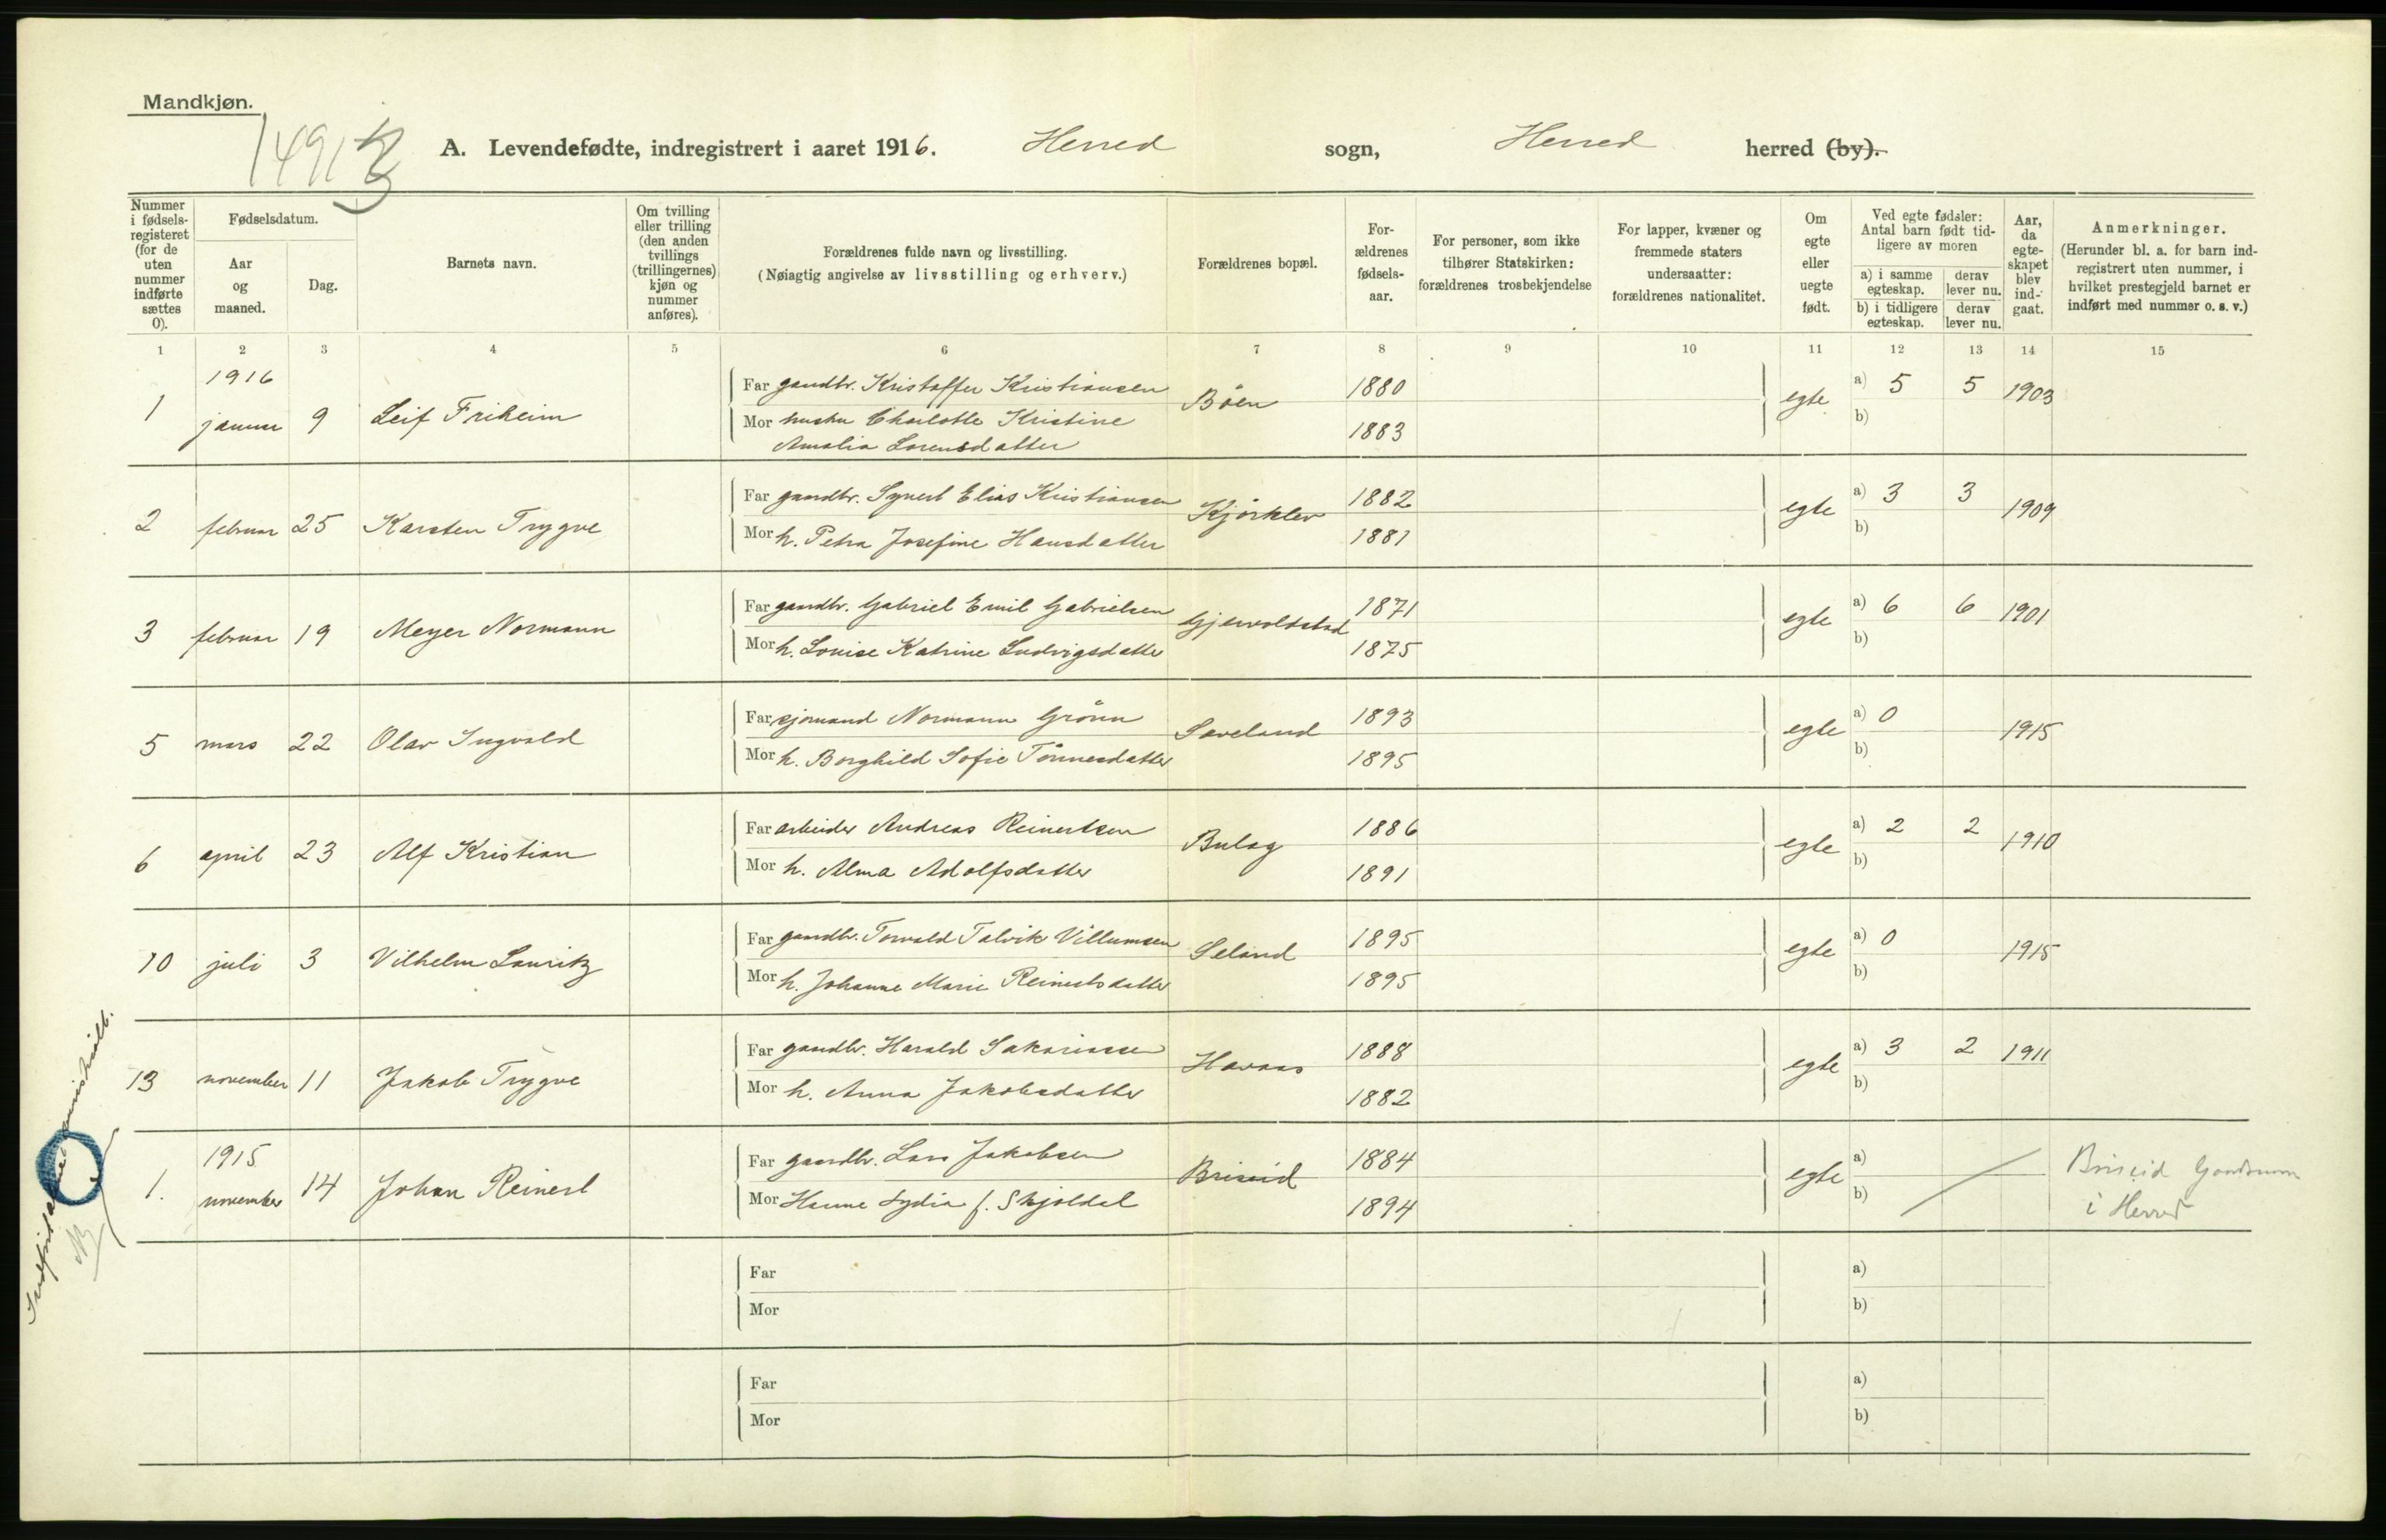 Mandkjøn.
A. Levendefødte, indregistrert i aaret 1916. Herred sogn, Herred herred (by).
Nummer i fødsels-registeret (for de uten nummer indførte sættes 0).
Fødselsdatum.
Aar og maaned.
Dag.
Barnets navn.
Om tvilling eller trilling (den anden tvillings (trillingernes) kjøn og nummer anføres).
Forældrenes fulde navn og livsstilling.
(Nøiagtig angivelse av livsstilling og erhverv.)
Forældrenes bopæl.
For-ældrenes fødsels-aar.
For personer, som ikke tilhører Statskirken: forældrenes trosbekjendelse
For lapper, kvæner og fremmede staters undersaatter: forældrenes nationalitet.
Om egte eller uegte født.
Ved egte fødsler: Antal barn født tid-ligere av moren
a) i samme egteskap. derav lever nu.
b) i tidligere egteskap. derav lever nu.
Aar, da egte-skapet blev ind-gaat.
Anmerkninger.
(Herunder bl. a. for barn ind-registrert uten nummer, i hvilket prestegjeld barnet er indført med nummer o. s. v.)
1 2 3 4 5 6 7 8 9 10 11 12 13 14 15
1916
Far gaardbr. Kristoffer Kristiansen Böen 1880 egte a) 5 5 1903
1 januar 9 Leif Friheim
Mor hustru Charlotte Kristine 1883 b)
Amalia Lorensdatter
Far gaardbr. Syvert Elias Kristiansen Kjörklev 1882 egte a) 3 3 1909
2 februar 25 Karsten Trygve
Mor h. Petra Josefine Hansdatter 1881 b)
Far gaardbr. Gabriel Emil Gabrielsen Gjervoldstad 1871 egte a) 6 6 1901
3 februar 19 Meyer Normann
Mor h. Louise Katrine Ludvigsdatter 1875 b)
Far sjømand Normann Grönn Saveland 1893 egte a) 0 1915
5 mars 22 Olav Ingvald
Mor h. Borghild Sofie Tönnesdatter 1895 b)
Far arbeider Andreas Reinertsen Bulag 1886 egte a) 2 2 1910
6 april 23 Alf Kristian
Mor h. Alma Adolfsdatter 1891 b)
Far gaardbr. Torvald Talvik Villumsen Seland 1895 egte a) 0 1915
10 juli 3 Vilhelm Lauritz
Mor h. Johanne Marie Reinertsdatter 1895 b)
Far gaardbr. Harald Sakariassen Havaas 1888 egte a) 3 2 1911
13 november 11 Jakob Trygve
Mor h. Anna Jakobsdatter 1882 b)
1915
Far gaardbr. Lars Jakobsen Briseid 1884 egte a) Briseid
1. november 14 Johan Reinert
Mor Hanne Lydia f. Skjoldal 1894 b) i Herred
Far a)
Mor b)
Far a)
Mor b)